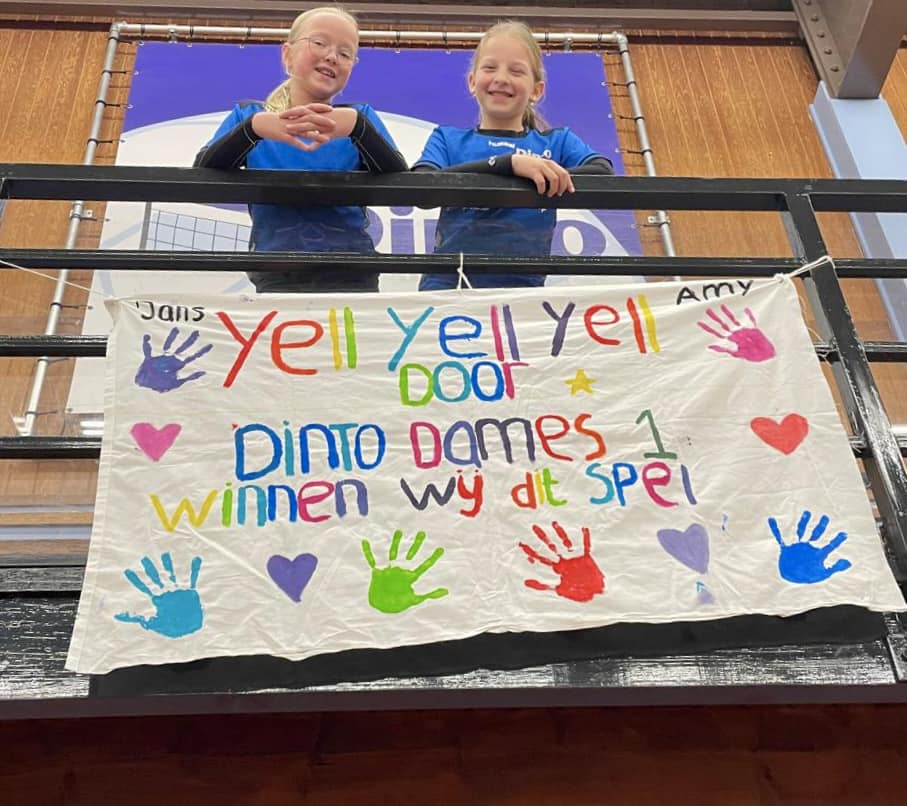 hummel
Dinto
Jans
Amy
Yell Yell Yell
Door
Dinto Dames 1
winnen wij dit spel